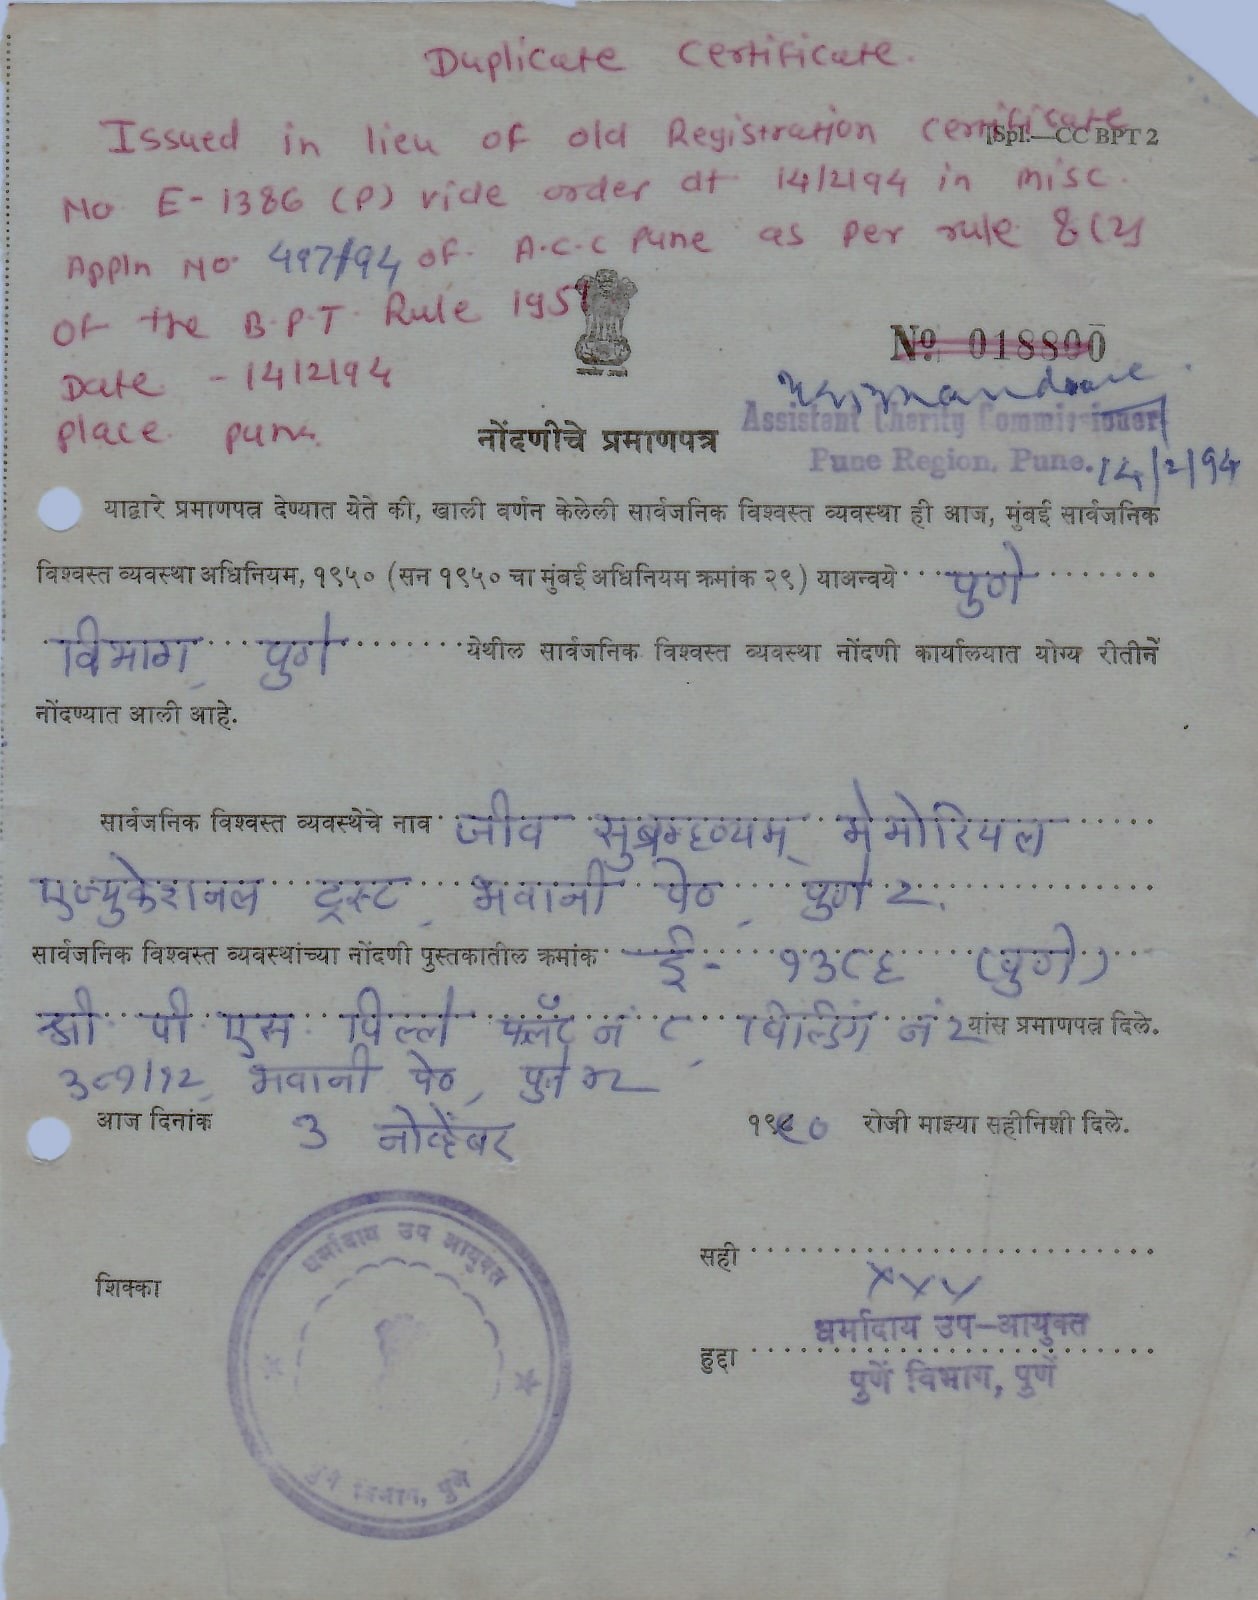 Duplicate Certificate.
Issued in lieu of old Registration Certificate
Spl.—CC BPT 2
No. E-1386 (P) vide order dt 14/2/94 in misc.
Appln No. 497/94 of. A.C.C Pune as per rule 8(2)
Of the B.P.T. Rule 1951
Nọ 018800
Date - 14/2/94
Assistant Charity Commissioner
place. pune.
नोंदणीचे प्रमाणपत्र
Pune Region, Pune. 14/2/94
याद्वारे प्रमाणपत्र देण्यात येते की, खाली वर्णन केलेली सार्वजनिक विश्वस्त व्यवस्था ही आज, मुंबई सार्वजनिक
विश्वस्त व्यवस्था अधिनियम, १९५० (सन १९५० चा मुंबई अधिनियम क्रमांक २९) याअन्वये पुणे
विभाग, पुणे येथील सार्वजनिक विश्वस्त व्यवस्था नोंदणी कार्यालयात योग्य रीतीनें
नोंदण्यात आली आहे.
सार्वजनिक विश्वस्त व्यवस्थेचे नाव जीव सुब्रम्हण्यम् मेमोरियल
एज्युकेशनल ट्रस्ट, भवानी पेठ, पुणे २.
सार्वजनिक विश्वस्त व्यवस्थांच्या नोंदणी पुस्तकातील क्रमांक ई- १३८६ (पुणे)
श्री पी एस पिल्ले फ्लॅट नं ८, बिल्डिंग नं २ यांस प्रमाणपत्र दिले.
३८१/१२, भवानी पेठ, पुणे ४२
आज दिनांक ३ नोव्हेंबर १९९० रोजी माझ्या सहीनिशी दिले.
धर्मादाय उप आयुक्त
सही
शिक्का
xxx
धर्मादाय उप-आयुक्त
हुद्दा
पुणें विभाग, पुणें
पुणे विभाग, पुणे